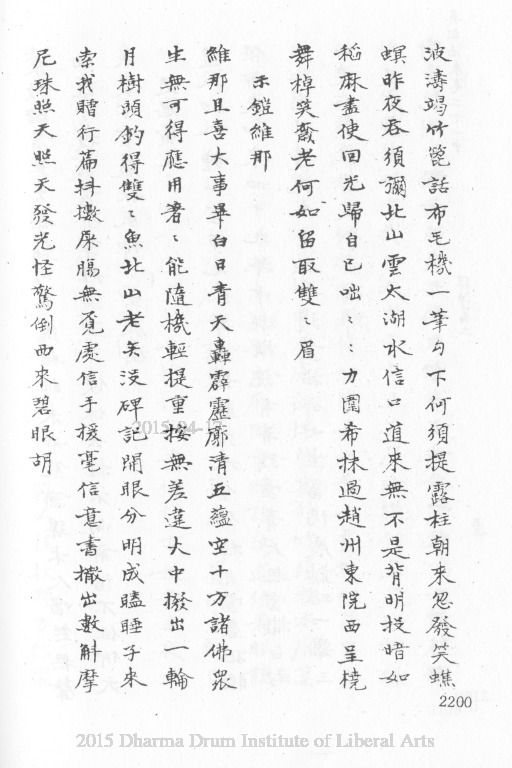 波濤竭竹篦話布毛機一筆勾下何須提露柱朝來忽發笑蟭
螟昨夜吞須彌北山雲太湖水信口道來無不是背明投暗如
稻麻盡使回光歸自己咄咄力圍希抹過趙州東院西呈橈
舞棹笑巖老何如留取雙〻眉
示鎧維那
維那且喜大事畢白日青天轟霹靂廓清五蘊空十方諸佛眾
生無可得應用著〻能隨機輕提重按無差違大中撥出一輪
月樹頭釣得雙〻魚北山老矣沒碑記開眼分明成瞌睡子來
索我贈行篇抖擻屎腸無覓處信手援毫信意書撒出數斛摩
尼珠照天照天發光怪驚倒西來碧眼胡
2200
2015-04-13
2015 Dharma Drum Institute of Liberal Arts